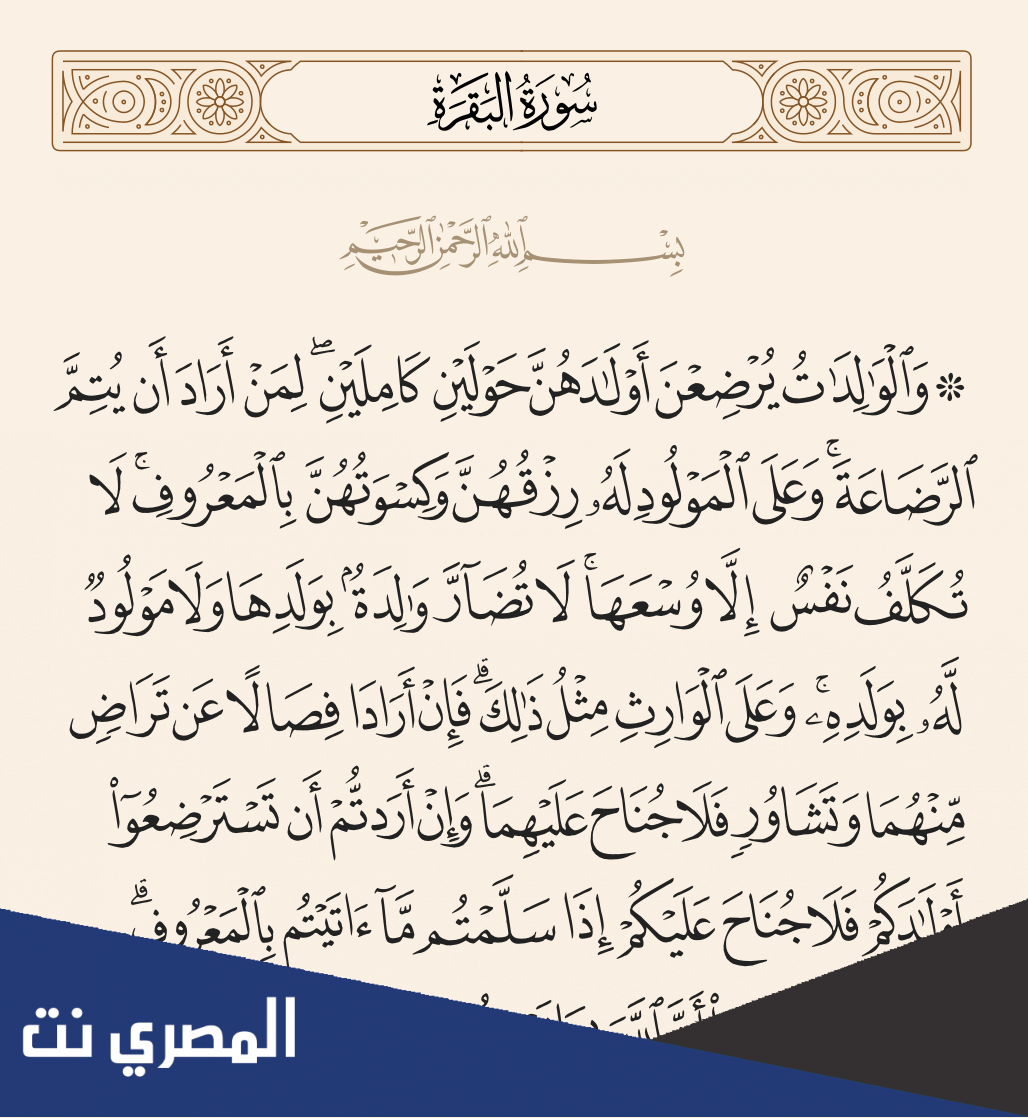 سُورَةُ البَقَرَةِ
بِسْمِ ٱللَّهِ ٱلرَّحْمَٰنِ ٱلرَّحِيمِ
۞ وَٱلْوَٰلِدَٰتُ يُرْضِعْنَ أَوْلَٰدَهُنَّ حَوْلَيْنِ كَامِلَيْنِ ۖ لِمَنْ أَرَادَ أَن يُتِمَّ
ٱلرَّضَاعَةَ ۚ وَعَلَى ٱلْمَوْلُودِ لَهُۥ رِزْقُهُنَّ وَكِسْوَتُهُنَّ بِٱلْمَعْرُوفِ ۚ لَا
تُكَلَّفُ نَفْسٌ إِلَّا وُسْعَهَا ۚ لَا تُضَآرَّ وَٰلِدَةٌۢ بِوَلَدِهَا وَلَا مَوْلُودٌ
لَّهُۥ بِوَلَدِهِۦ ۚ وَعَلَى ٱلْوَارِثِ مِثْلُ ذَٰلِكَ ۗ فَإِنْ أَرَادَا فِصَالًا عَن تَرَاضٍ
مِّنْهُمَا وَتَشَاوُرٍ فَلَا جُنَاحَ عَلَيْهِمَا ۗ وَإِنْ أَرَدتُّمْ أَن تَسْتَرْضِعُوٓا۟
أَوْلَٰدَكُمْ فَلَا جُنَاحَ عَلَيْكُمْ إِذَا سَلَّمْتُم مَّآ ءَاتَيْتُم بِٱلْمَعْرُوفِ ۗ
المصري نت